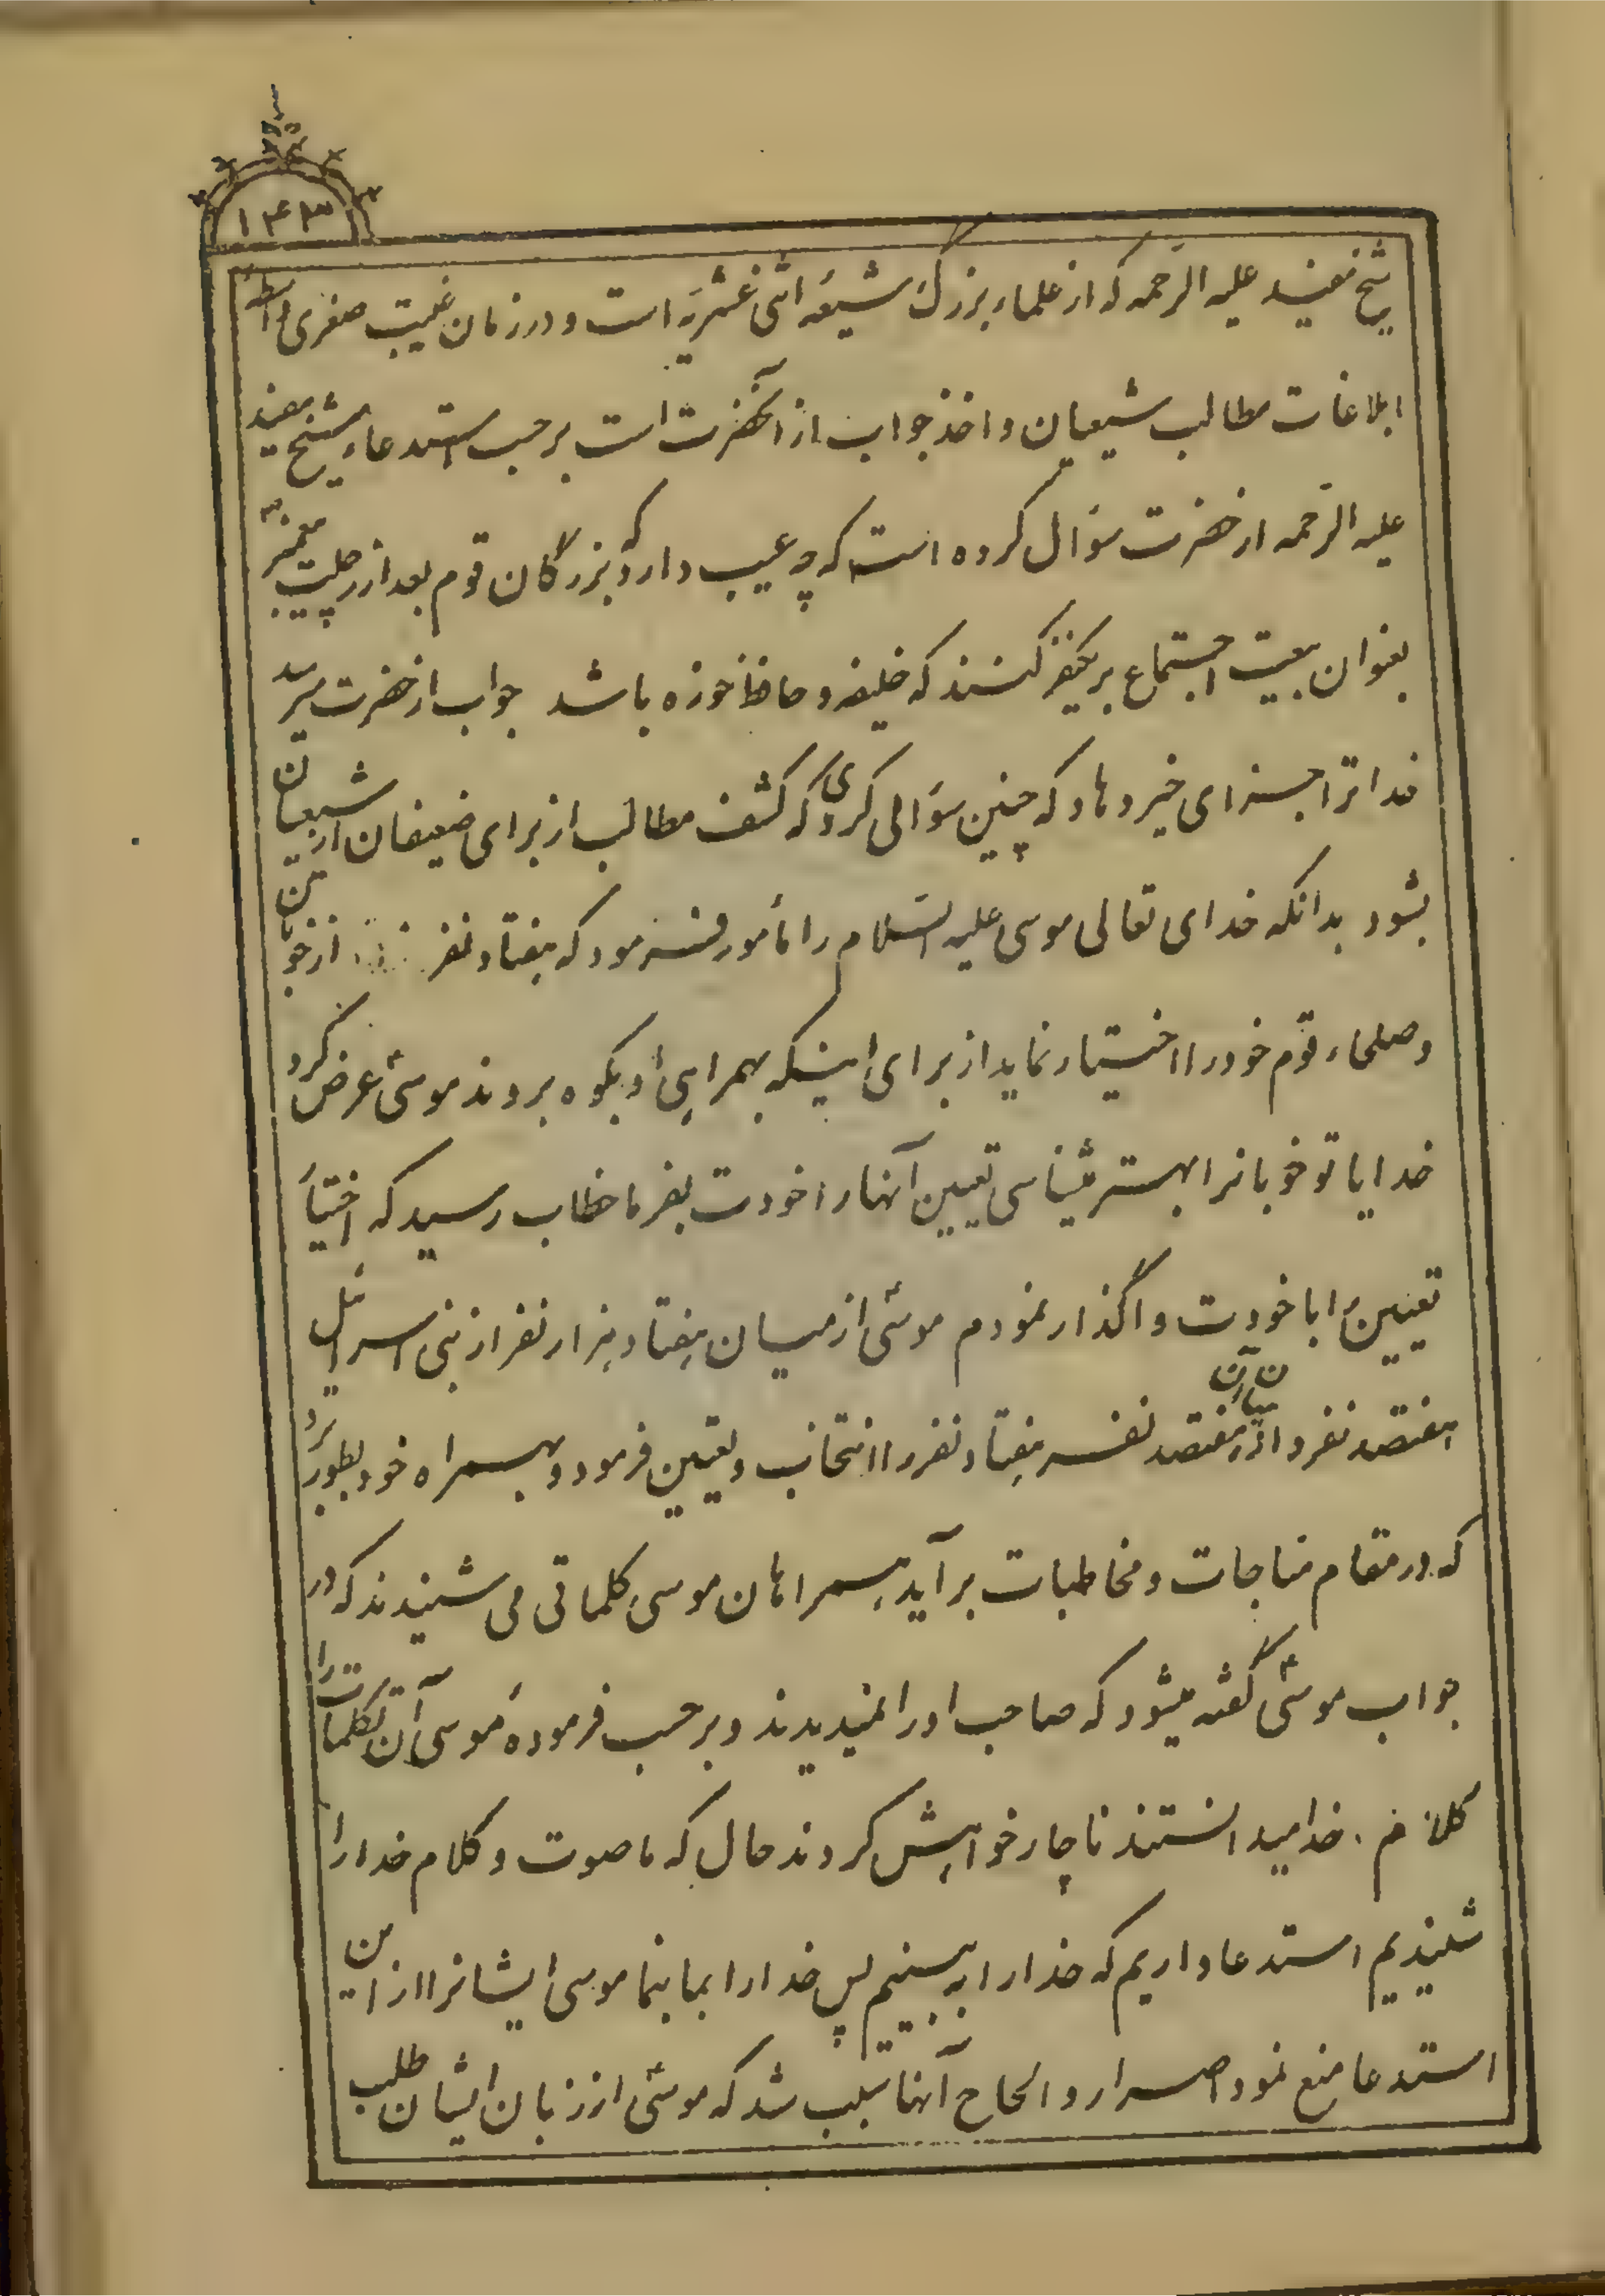 ۱۴۳
شیخ مفید علیه الرّحمه که از علماء بزرگ شیعه اثنی عشریّه است و در زمان غیبت صغری واسطهٔ
ابلاغات مطالب شیعیان و اخذ جواب از آنحضرت است بر حسب استدعاء شیخ مفید
علیه الرّحمه از حضرت سؤال کرده است که چه عیب دارد که بزرگان قوم بعد از رحلت پیغمبر
بعنوان بیعت اجتماع بر یکنفر کنند که خلیفه و حافظ حوزه باشد جواب از حضرت میرسد
خدا ترا جزای خیر دهاد که چنین سؤالی کردی که کشف مطالب از برای ضعیفان از شیعیان
بشود بدانکه خدای تعالی موسی علیه السّلام را مأمور فرمود که هفتاد نفر از خوبان
و صلحاء قوم خود را اختیار نماید از برای اینکه بهمراهی او بکوه بروند موسیٰ عرض کرد
خدایا تو خوبانرا بهتر میشناسی تعیین آنها را خودت بفرما خطاب رسید که اختیار
تعیین را با خودت واگذار نمودم موسیٰ از میان هفتاد هزار نفر از بنی اسرائیل
هفتصد نفر و از میان آن هفتصد نفر هفتاد نفر را انتخاب و تعیین فرمود و بهمراه خود بطور برد
که در مقام مناجات و مخاطبات برآید همراهان موسی کلماتی می شنیدند که در
جواب موسیٰ گفته میشود که صاحب او را نمیدیدند و بر حسب فرمودهٔ موسی آن تکلمات را
کلام خدا میدانستند ناچار خواهش کردند حال که ما صوت و کلام خدا را
شنیدیم استدعا داریم که خدا را به بینیم پس خدا را بما بنما موسی ایشانرا از این
استدعا منع نمود اصرار و الحاح آنها سبب شد که موسیٰ از زبان ایشان طلب